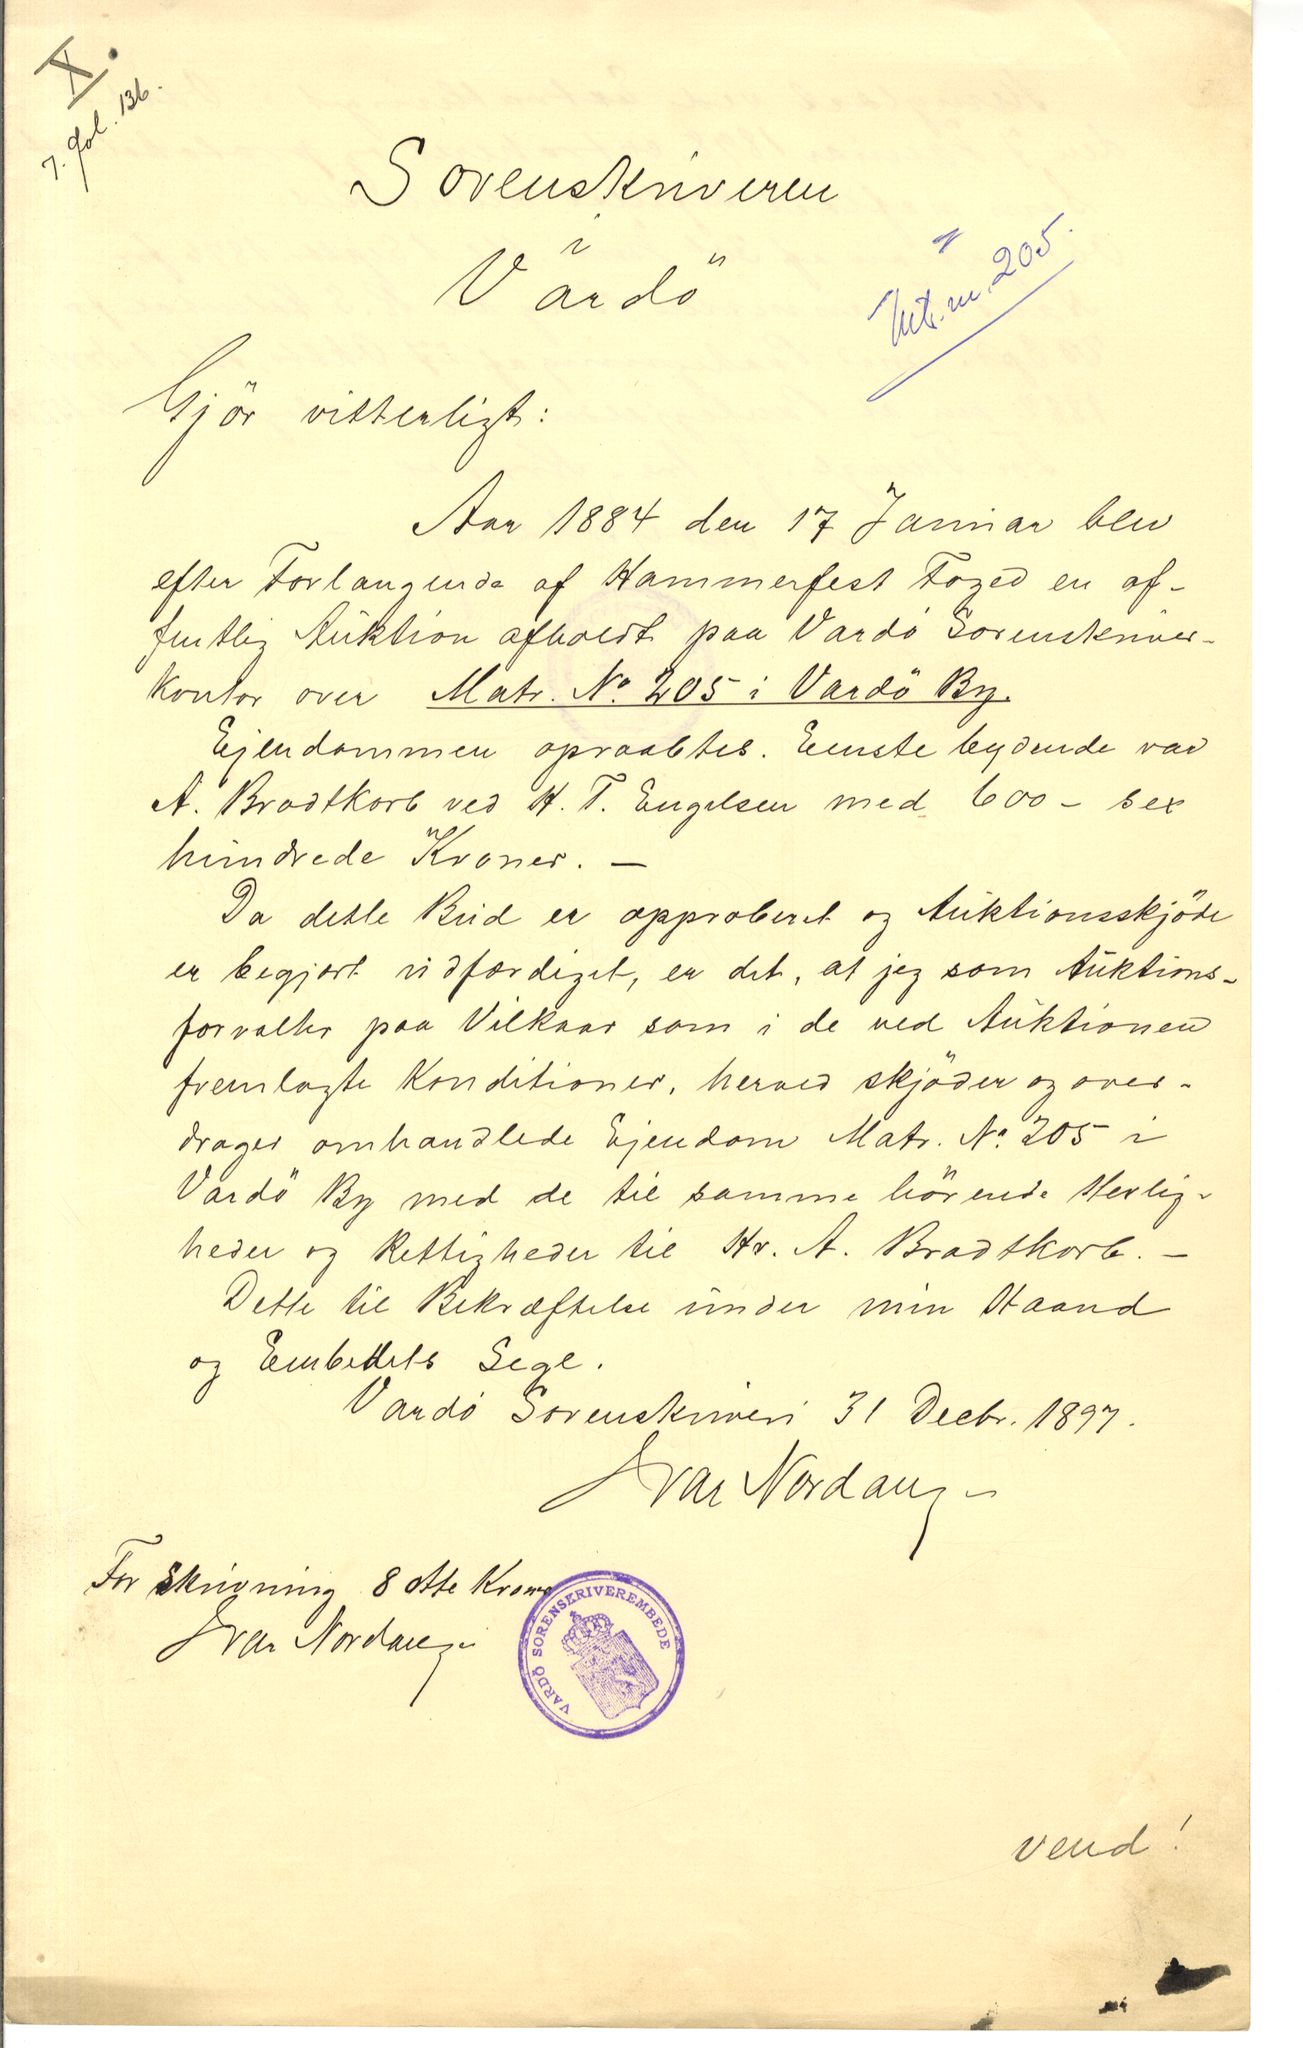 X.
7. fol. 136.
Sorenskriveren
i
Vardö
Mtr. nr. 205.
Gjör vitterligt:
Aar 1884 den 17 Januar blev
efter Forlangende af Hammerfest Foged en of-
fentlig Auktion afholdt paa Vardö Sorenskriver-
kontor over Matr. No. 205 i Vardö By.
Ejendommen opraabtes. Eneste bydende var
A. Brodtkorb ved H. T. Engelsen med 600 - sex
hundrede Kroner. -
Da dette Bud er approberet og Auktionsskjöde
er begjært udfærdiget, er det, at jeg som Auktions-
forvalter paa Vilkaar som i de ved Auktionen
fremlagte Konditioner, herved skjöder og over-
drager omhandlede Ejendom Matr. No. 205 i
Vardö By med de til samme hörende Herlig-
heder og Rettigheder til Hr. A. Brodtkorb. -
Dette til Bekræftelse under min Haand
og Embedets Segl.
Vardö Sorenskriveri 31 Decbr. 1897.
Ivar Nordang
For skrivning 8 otte Kroner
Ivar Nordang
VARDÖ SORENSKRIVEREMBEDE
vend!